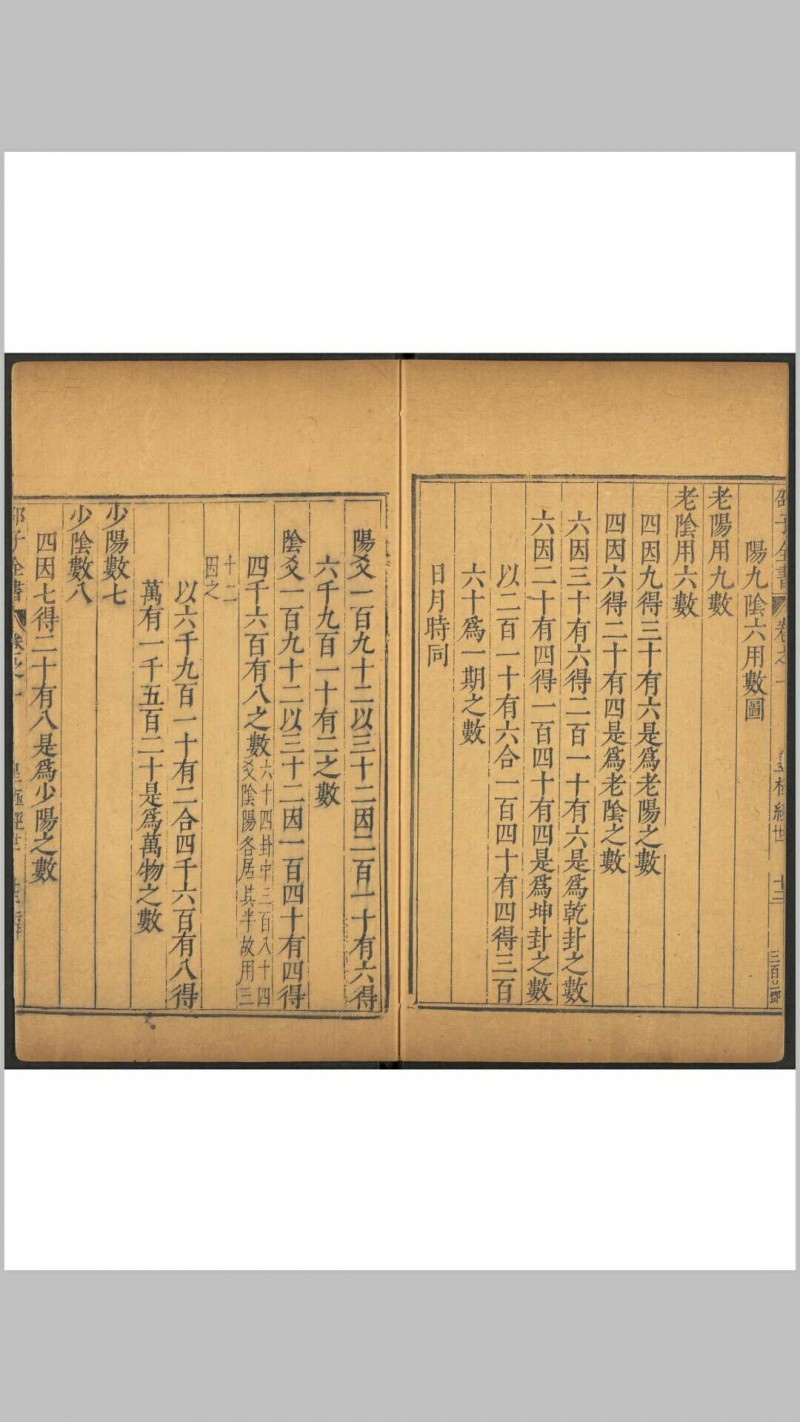 邵子全書 卷之一 皇極經世 十三
陽九陰六用數圖
老陽用九數
老陰用六數
四因九得三十有六是爲老陽之數
四因六得二十有四是爲老陰之數
六因三十有六得二百一十有六是爲乾卦之數
六因二十有四得一百四十有四是爲坤卦之數
以二百一十有六合一百四十有四得三百
六十爲一期之數
日月時同
陽爻一百九十二以三十二因二百一十有六得
六千九百一十有二之數
陰爻一百九十二以三十二因一百四十有四得
四千六百有八之數六十四卦中三百八十四
爻陰陽各居其半故用三
十二
因之
以六千九百一十有二合四千六百有八得
萬有一千五百二十是爲萬物之數
少陽數七
少陰數八
四因七得二十有八是爲少陽之數
邵子全書 卷之一 皇極經世